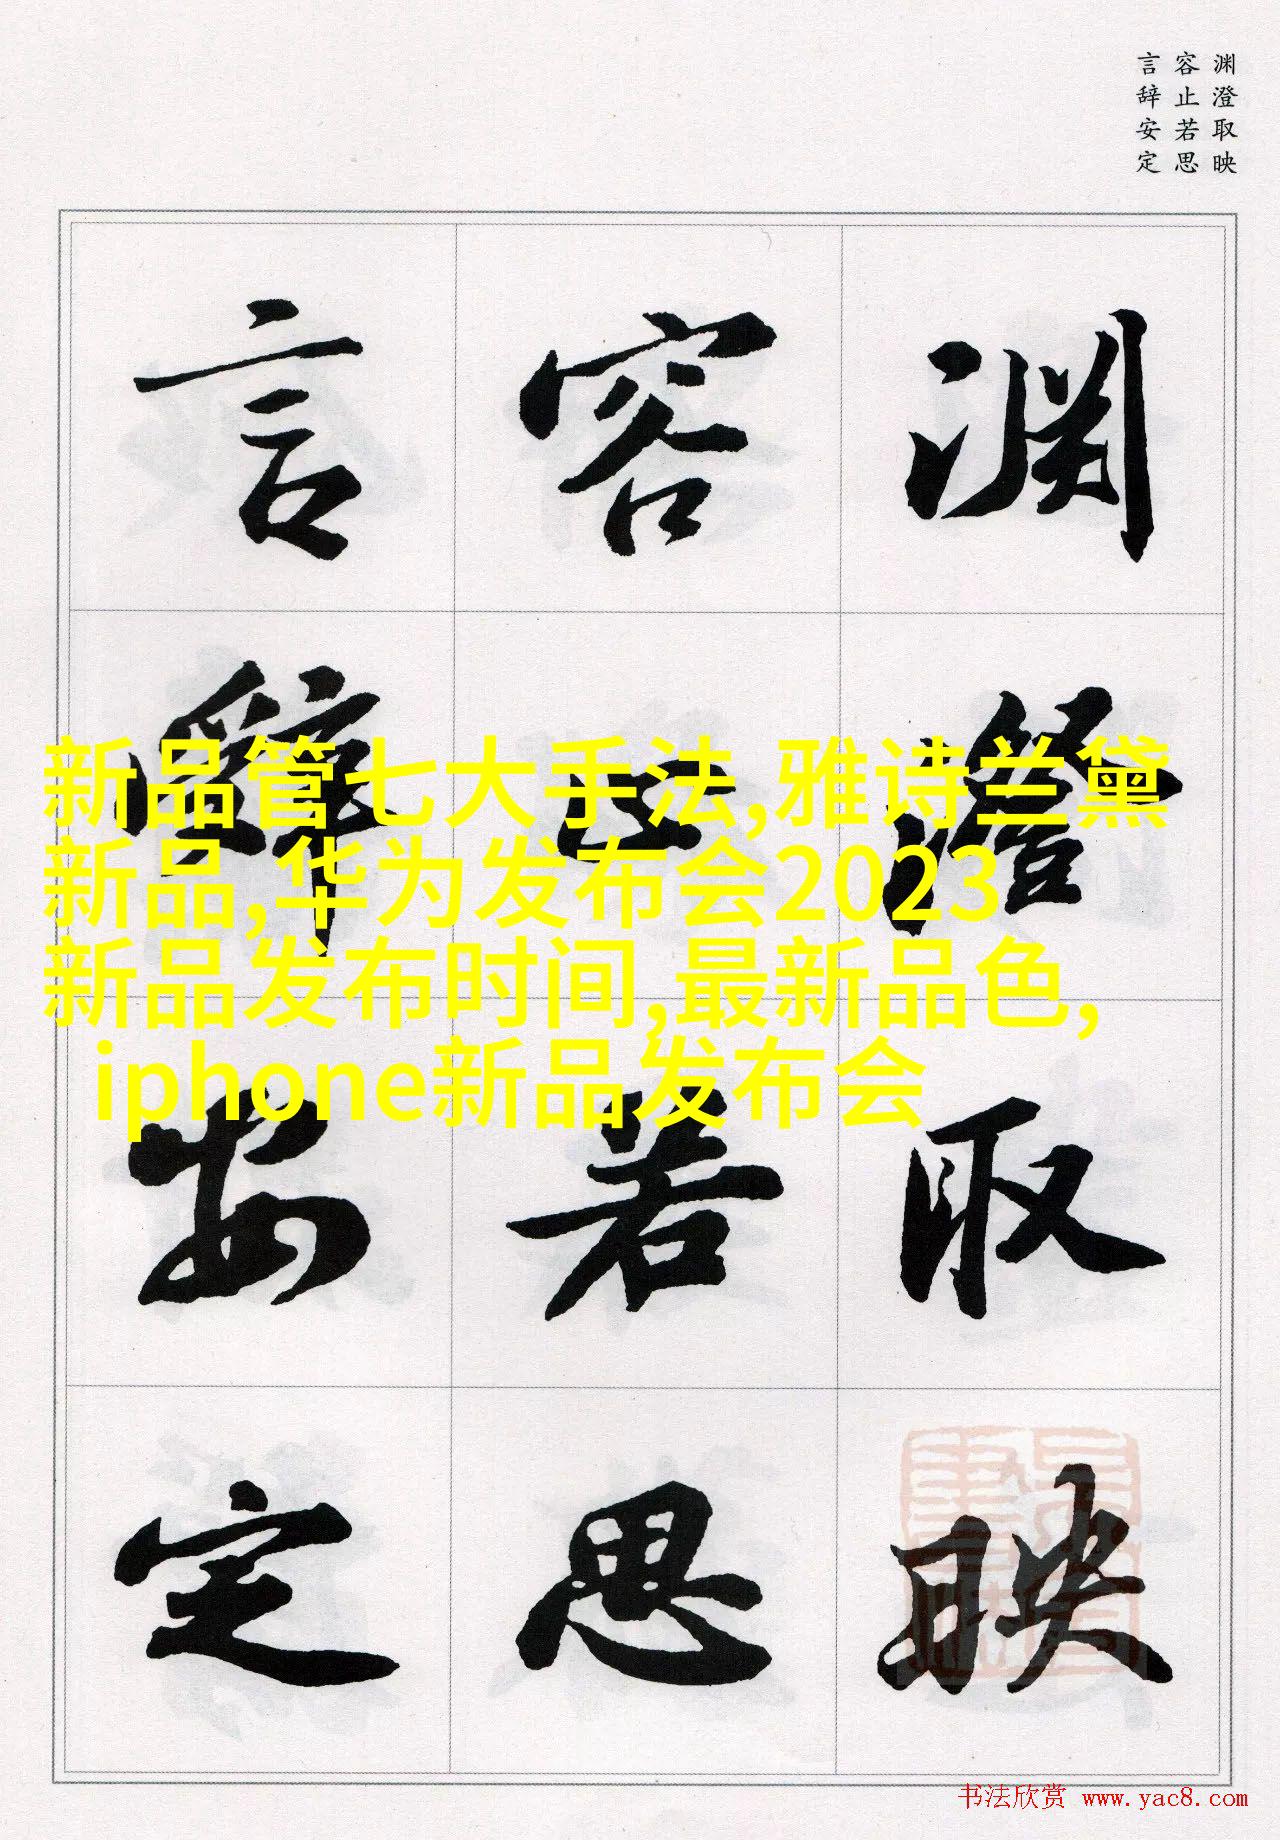 渊澄取映
容止若思
言辞安定
渊澄取映
容止若思
言辞安定
新品管七大手法,雅诗兰黛
新品,华为发布会2023
新品发布时间,最新品色,
iphone新品发布会
书法欣赏 www.yac8.com